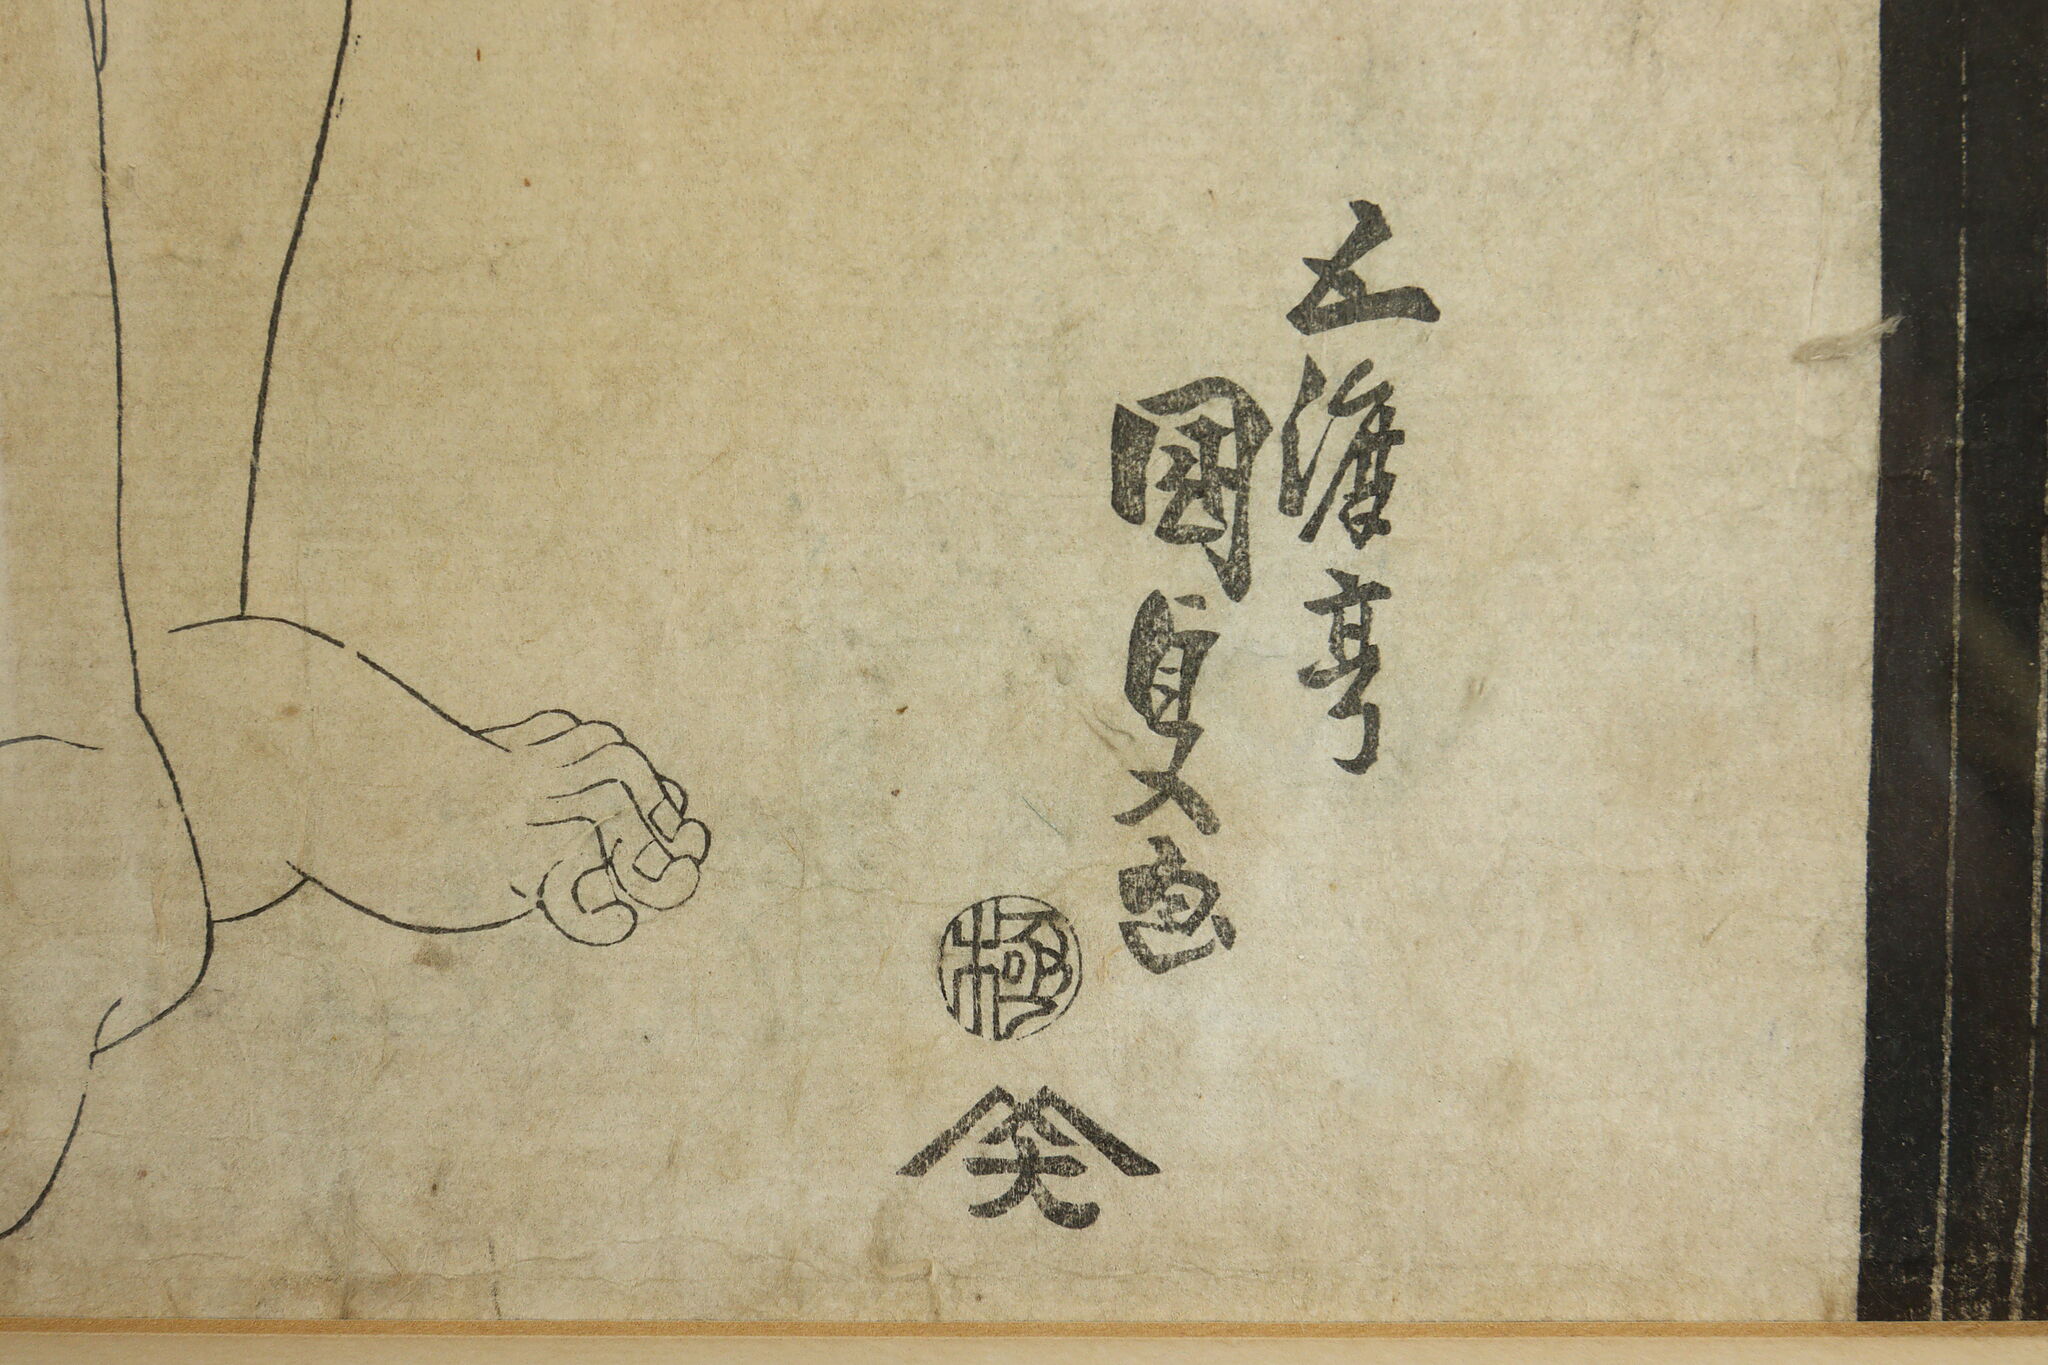 五渡亭
國貞画
極
笑